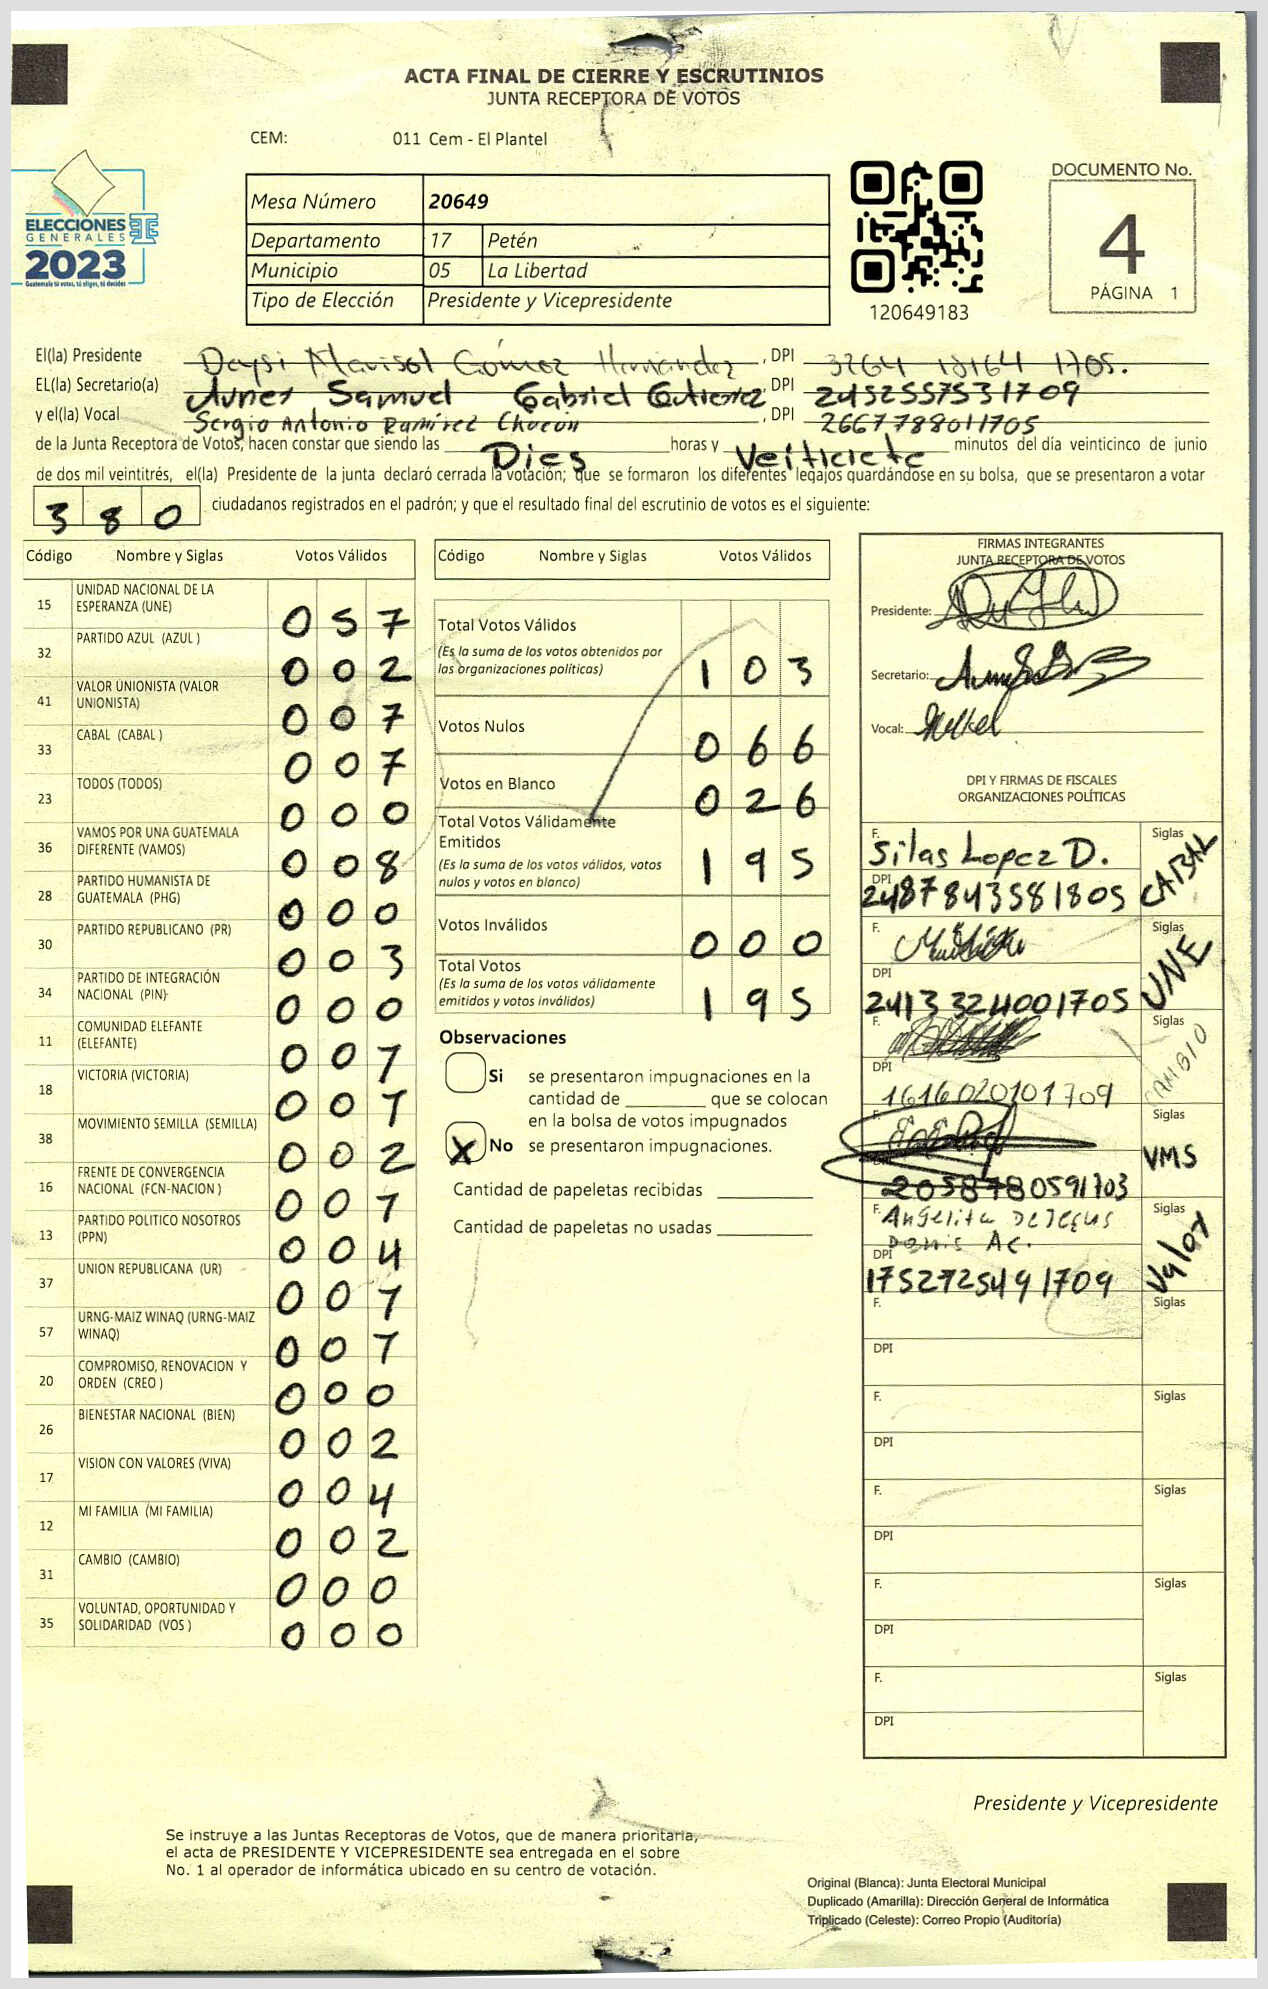 ACTA FINAL DE CIERRE Y ESCRUTINIOS
JUNTA RECEPTORA DE VOTOS
CEM: 011 Cem - El Plantel
ELECCIONES
GENERALES
2023
Guatemala tú votas, tú eliges, tú decides
Mesa Número 20649
Departamento 17 Petén
Municipio 05 La Libertad
Tipo de Elección Presidente y Vicepresidente
120649183
DOCUMENTO No.
4
PÁGINA 1
El(la) Presidente Daysi Marisol Gómez Hernández, DPI 3264 18164 1705.
EL(la) Secretario(a) Samuel Gabriel Gutierrez, DPI 2452557531709
y el(la) Vocal Sergio Antonio Ramírez Chacón, DPI 2667788011705
de la Junta Receptora de Votos, hacen constar que siendo las Dies horas y Veiticiete minutos del día veinticinco de junio
de dos mil veintitrés, el(la) Presidente de la junta declaró cerrada la votación; que se formaron los diferentes legajos guardándose en su bolsa, que se presentaron a votar
380 ciudadanos registrados en el padrón; y que el resultado final del escrutinio de votos es el siguiente:
Código Nombre y Siglas Votos Válidos
15 UNIDAD NACIONAL DE LA
ESPERANZA (UNE) 057
32 PARTIDO AZUL (AZUL ) 002
41 VALOR UNIONISTA (VALOR
UNIONISTA) 007
33 CABAL (CABAL ) 007
23 TODOS (TODOS) 000
36 VAMOS POR UNA GUATEMALA
DIFERENTE (VAMOS) 008
28 PARTIDO HUMANISTA DE
GUATEMALA (PHG) 000
30 PARTIDO REPUBLICANO (PR) 003
34 PARTIDO DE INTEGRACIÓN
NACIONAL (PIN) 000
11 COMUNIDAD ELEFANTE
(ELEFANTE) 007
18 VICTORIA (VICTORIA) 007
38 MOVIMIENTO SEMILLA (SEMILLA) 002
16 FRENTE DE CONVERGENCIA
NACIONAL (FCN-NACION ) 007
13 PARTIDO POLITICO NOSOTROS
(PPN) 004
37 UNION REPUBLICANA (UR) 007
57 URNG-MAIZ WINAQ (URNG-MAIZ
WINAQ) 007
20 COMPROMISO, RENOVACION Y
ORDEN (CREO ) 000
26 BIENESTAR NACIONAL (BIEN) 002
17 VISION CON VALORES (VIVA) 004
12 MI FAMILIA (MI FAMILIA) 002
31 CAMBIO (CAMBIO) 000
35 VOLUNTAD, OPORTUNIDAD Y
SOLIDARIDAD (VOS ) 000
Código Nombre y Siglas Votos Válidos
Total Votos Válidos
(Es la suma de los votos obtenidos por
las organizaciones políticas) 103
Votos Nulos 066
Votos en Blanco 026
Total Votos Válidamente
Emitidos
(Es la suma de los votos válidos, votos
nulos y votos en blanco) 195
Votos Inválidos 000
Total Votos
(Es la suma de los votos válidamente
emitidos y votos inválidos) 195
Observaciones
Si se presentaron impugnaciones en la
cantidad de ________ que se colocan
en la bolsa de votos impugnados
X No se presentaron impugnaciones.
Cantidad de papeletas recibidas
Cantidad de papeletas no usadas
FIRMAS INTEGRANTES
JUNTA RECEPTORA DE VOTOS
Presidente:
Secretario:
Vocal:
DPI Y FIRMAS DE FISCALES
ORGANIZACIONES POLÍTICAS
F. Silas Lopez D. Siglas CABAL
DPI 2487843581805
F. Siglas UNE
DPI 2413324001705
F. Siglas CAMBIO
DPI 1616020101709
F. Siglas VMS
DPI 2058780591703
F. Angelita DeJesus Siglas Valor
Denis Ac.
DPI 1752725491709
F. Siglas
DPI
F. Siglas
DPI
F. Siglas
DPI
F. Siglas
DPI
F. Siglas
DPI
Presidente y Vicepresidente
Se instruye a las Juntas Receptoras de Votos, que de manera prioritaria,
el acta de PRESIDENTE Y VICEPRESIDENTE sea entregada en el sobre
No. 1 al operador de informática ubicado en su centro de votación.
Original (Blanca): Junta Electoral Municipal
Duplicado (Amarilla): Dirección General de Informática
Triplicado (Celeste): Correo Propio (Auditoría)